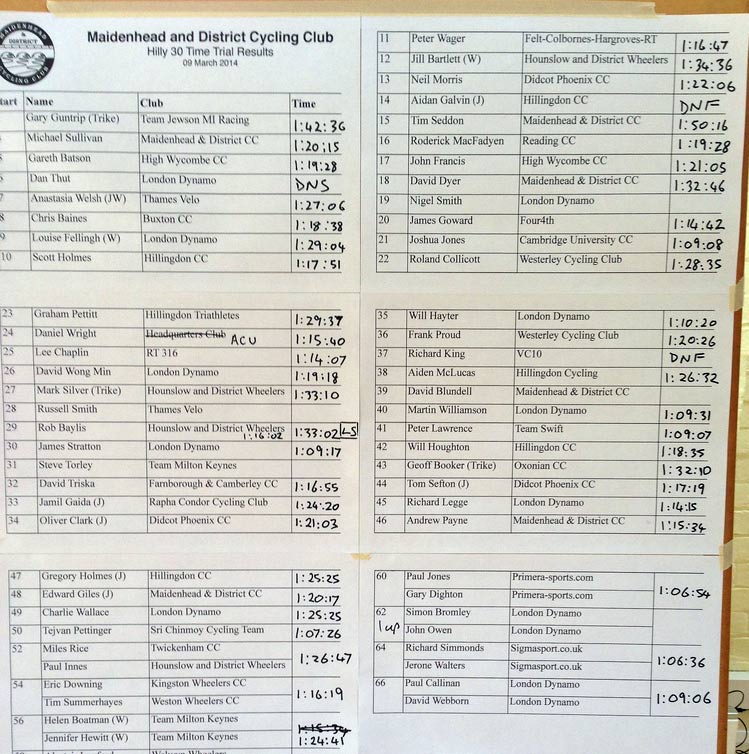 MAIDENHEAD & DISTRICT CYCLING CLUB
Maidenhead and District Cycling Club
Hilly 30 Time Trial Results
09 March 2014
tart Name Club Time
Gary Guntrip (Trike) Team Jewson MI Racing 1:42:36
Michael Sullivan Maidenhead & District CC 1:20:15
Gareth Batson High Wycombe CC 1:19:28
Dan Thut London Dynamo DNS
7 Anastasia Welsh (JW) Thames Velo 1:27:06
8 Chris Baines Buxton CC 1:18:38
9 Louise Fellingh (W) London Dynamo 1:29:04
10 Scott Holmes Hillingdon CC 1:17:51
11 Peter Wager Felt-Colbornes-Hargroves-RT 1:16:47
12 Jill Bartlett (W) Hounslow and District Wheelers 1:34:36
13 Neil Morris Didcot Phoenix CC 1:22:06
14 Aidan Galvin (J) Hillingdon CC DNF
15 Tim Seddon Maidenhead & District CC 1:50:16
16 Roderick MacFadyen Reading CC 1:19:28
17 John Francis High Wycombe CC 1:21:05
18 David Dyer Maidenhead & District CC 1:32:46
19 Nigel Smith London Dynamo
20 James Goward Four4th 1:14:42
21 Joshua Jones Cambridge University CC 1:09:08
22 Roland Collicott Westerley Cycling Club 1:28:35
23 Graham Pettitt Hillingdon Triathletes 1:29:37
24 Daniel Wright Headquarters Club ACU 1:15:40
25 Lee Chaplin RT 316 1:14:07
26 David Wong Min London Dynamo 1:19:18
27 Mark Silver (Trike) Hounslow and District Wheelers 1:33:10
28 Russell Smith Thames Velo
29 Rob Baylis Hounslow and District Wheelers 1:16:02 1:33:02 LS
30 James Stratton London Dynamo 1:09:17
31 Steve Torley Team Milton Keynes
32 David Triska Farnborough & Camberley CC 1:16:55
33 Jamil Gaida (J) Rapha Condor Cycling Club 1:24:20
34 Oliver Clark (J) Didcot Phoenix CC 1:21:03
35 Will Hayter London Dynamo 1:10:20
36 Frank Proud Westerley Cycling Club 1:20:26
37 Richard King VC10 DNF
38 Aiden McLucas Hillingdon Cycling 1:26:32
39 David Blundell Maidenhead & District CC
40 Martin Williamson London Dynamo 1:09:31
41 Peter Lawrence Team Swift 1:09:07
42 Will Houghton Hillingdon CC 1:18:35
43 Geoff Booker (Trike) Oxonian CC 1:32:10
44 Tom Sefton (J) Didcot Phoenix CC 1:17:19
45 Richard Legge London Dynamo 1:14:15
46 Andrew Payne Maidenhead & District CC 1:15:34
47 Gregory Holmes (J) Hillingdon CC 1:25:25
48 Edward Giles (J) Maidenhead & District CC 1:20:17
49 Charlie Wallace London Dynamo 1:25:25
50 Tejvan Pettinger Sri Chinmoy Cycling Team 1:07:26
52 Miles Rice Twickenham CC
Paul Innes Hounslow and District Wheelers 1:26:47
54 Eric Downing Kingston Wheelers CC
Tim Summerhayes Weston Wheelers CC 1:16:19
56 Helen Boatman (W) Team Milton Keynes 1:15:34
Jennifer Hewitt (W) Team Milton Keynes 1:24:41
60 Paul Jones Primera-sports.com
Gary Dighton Primera-sports.com 1:06:54
62 Simon Bromley London Dynamo
1 up John Owen London Dynamo
64 Richard Simmonds Sigmasport.co.uk
Jerone Walters Sigmasport.co.uk 1:06:36
66 Paul Callinan London Dynamo
David Webborn London Dynamo 1:09:06